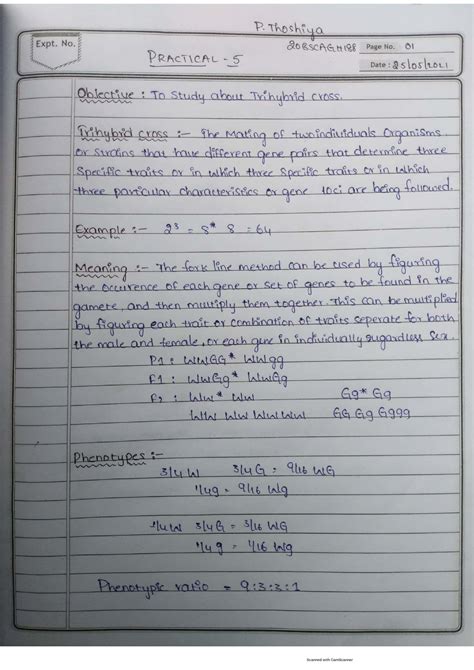 P. Thoshiya
Expt. No.
20BSCAGH188 Page No. 01
PRACTICAL - 5
Date: 25/05/2021
Objective : To Study about Trihybrid cross.
Trihybrid cross :- The Mating of two individuals Organisms
or strains that have different gene pairs that determine three
specific traits or in which three specific traits or in which
three particular characteristics or gene loci are being followed.
Example :- 2³ = 8 * 8 = 64
Meaning :- The fork line method can be used by figuring
the occurrence of each gene or set of genes to be found in the
gamete, and then multiply them together. This can be multiplied
by figuring each trait or combination of traits seperate for both
the male and female, or each gene in individually regardless Sex.
P1 : WWGG * WWgg
F1 : WwGg * WwGg
F2 : Ww * Ww Gg * Gg
WW Ww Ww Ww GG Gg Gggg
Phenotypes :-
3/4 W 3/4 G = 9/16 WG
1/4 g = 9/16 Wg
1/4 W 3/4 G = 3/16 WG
1/4 g = 1/16 Wg
Phenotypic ratio = 9:3:3:1
Scanned with CamScanner